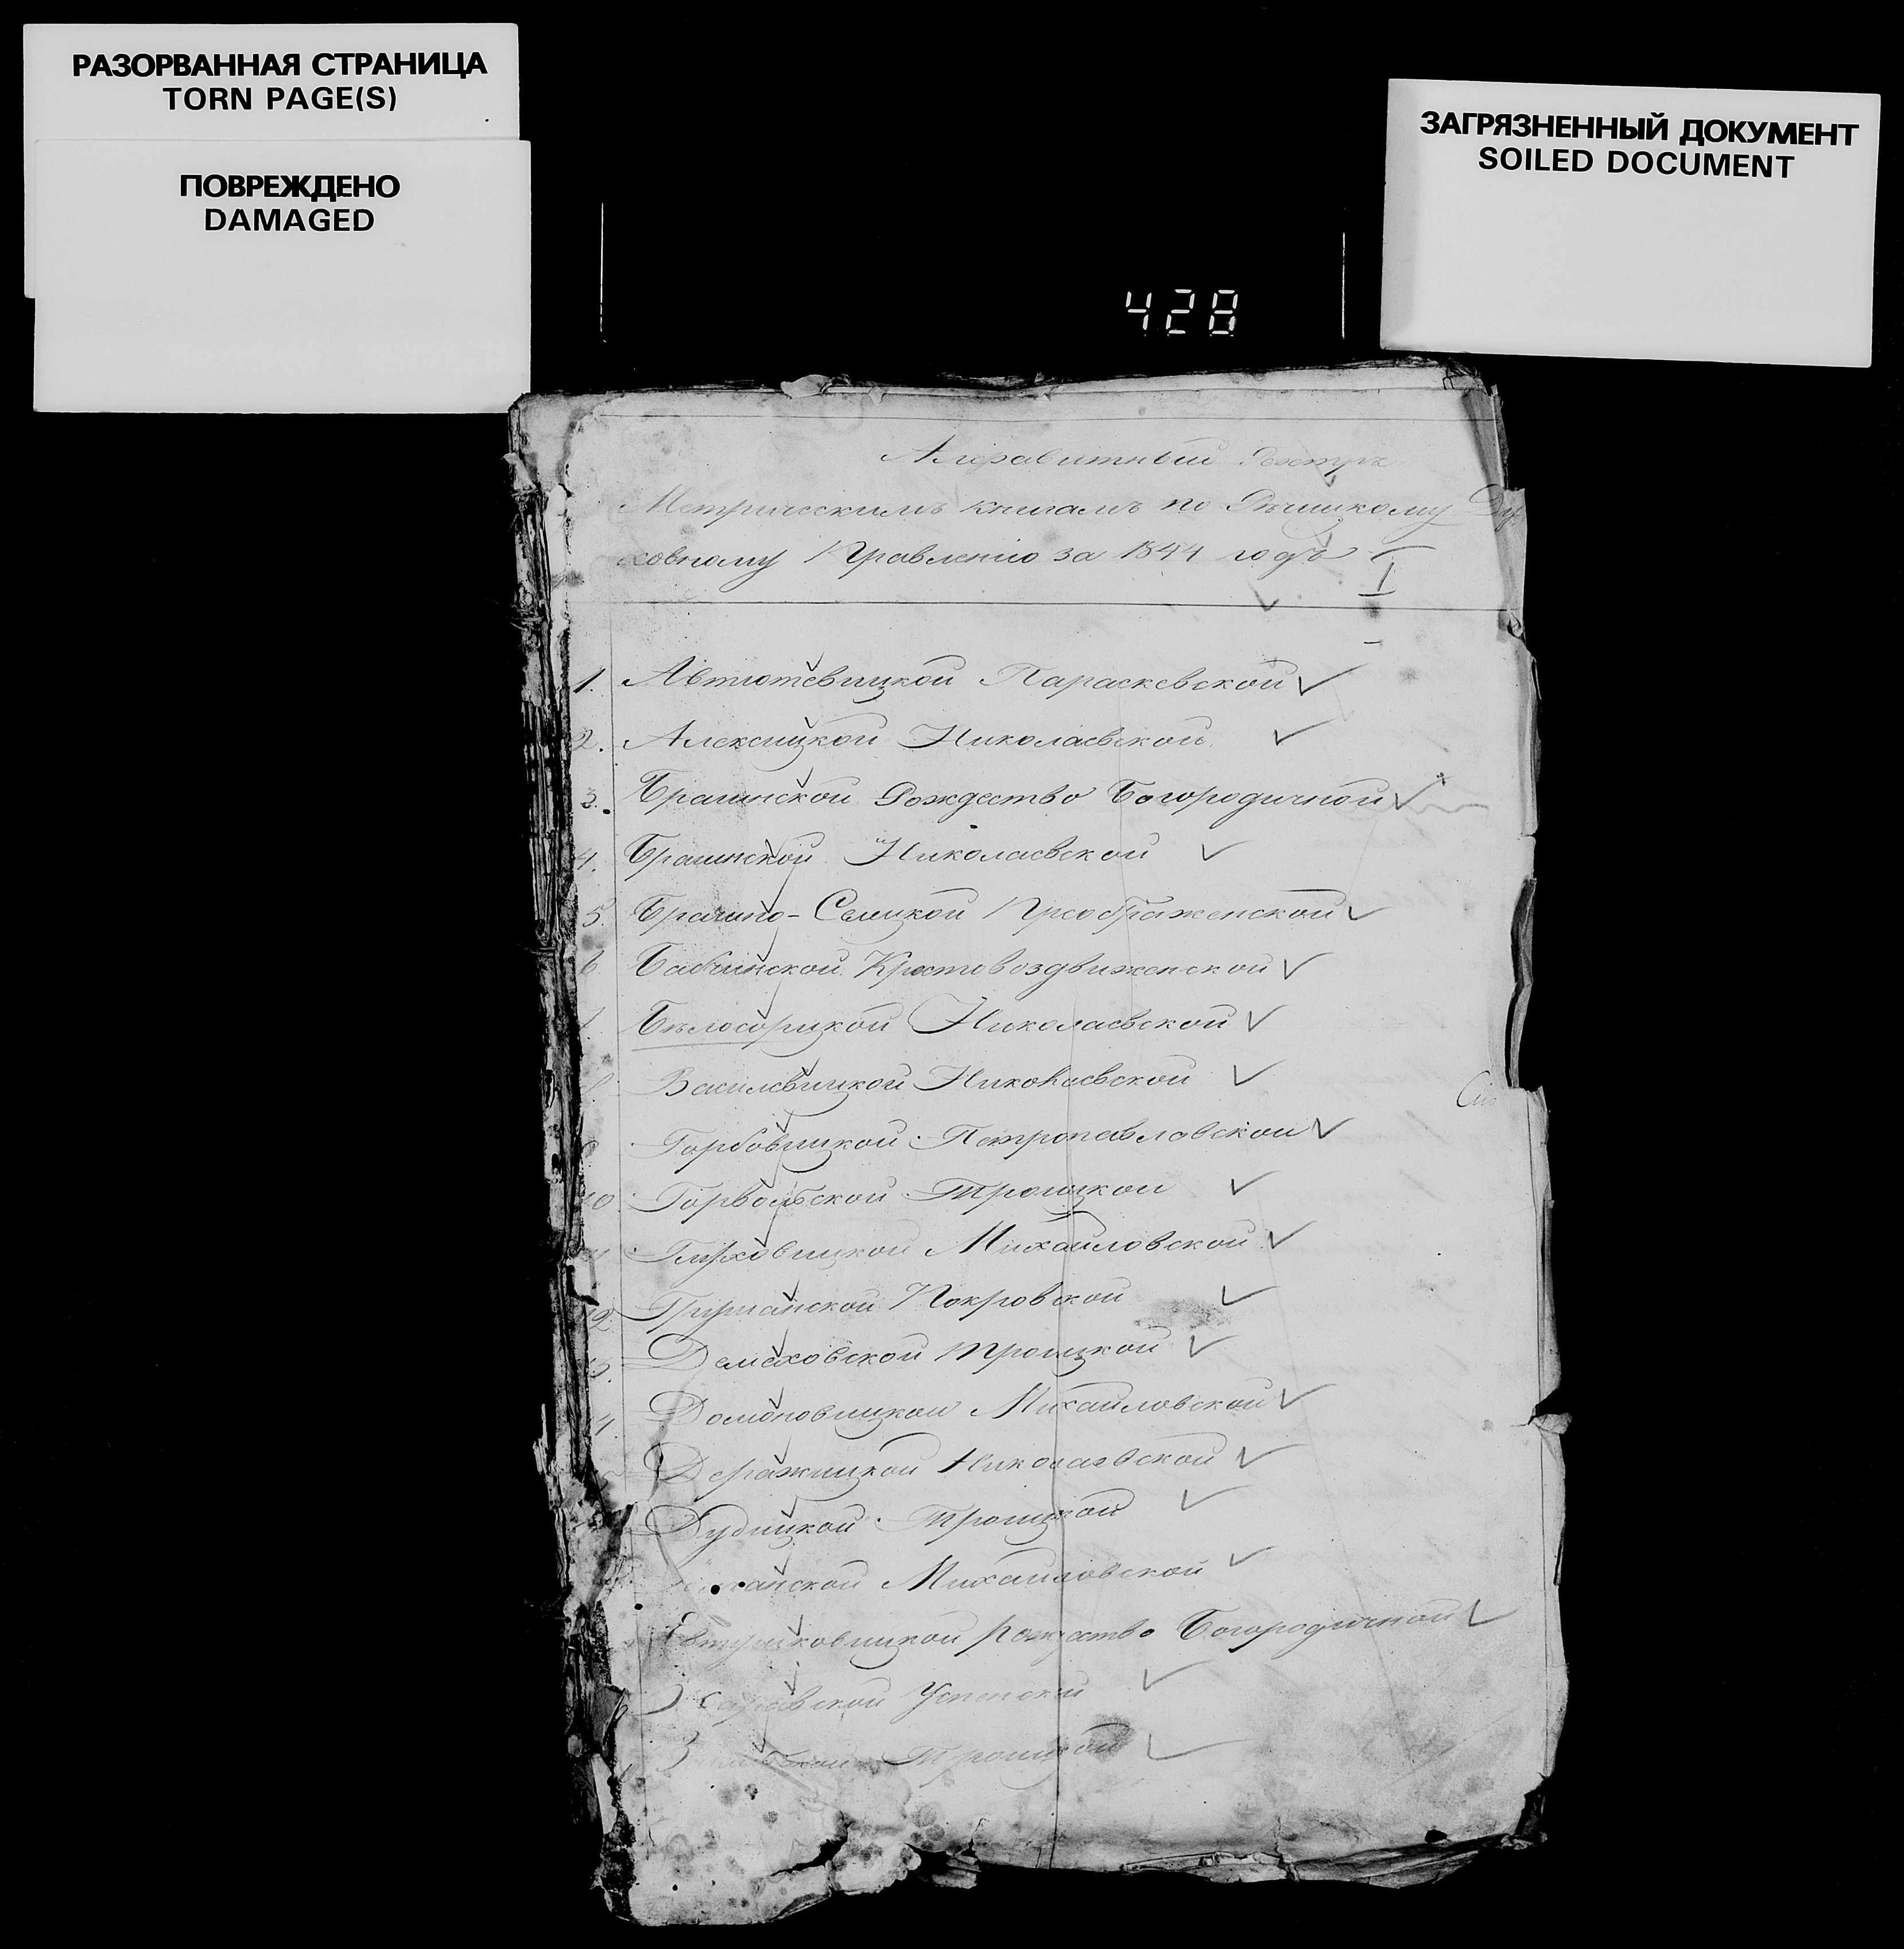 РАЗОРВАННАЯ СТРАНИЦА
TORN PAGE(S)
ПОВРЕЖДЕНО
DAMAGED
ЗАГРЯЗНЕННЫЙ ДОКУМЕНТ
SOILED DOCUMENT
428
Алфавитный Реэстръ
Метрическимъ книгамъ по Рѣчицкому Ду
ховному Правленію за 1844 годъ
1. Автютевицкой Параскевской
2. Алексицкой Николаевской
3. Брагинской Рождество Богородичной
4. Брагинской Николаевской
5. Брагино-Селицкой Преображенской
6 Бабчинской Крестовоздвиженской
Бѣлосорицкой Николаевской
Василевицкой Николаевской
Горбовицкой Петропавловской
10 Горвольской Троицкой
Глуховицкой Михайловской
12 Грушанской Покровской
Демеховской Троицкой
Домоновицкой Михайловской
Деражицкой Николаевской
Дудицкой Троицкой
Михайловской
Евтушковицкой Рождество Богородичной
Успенской
Троицкой